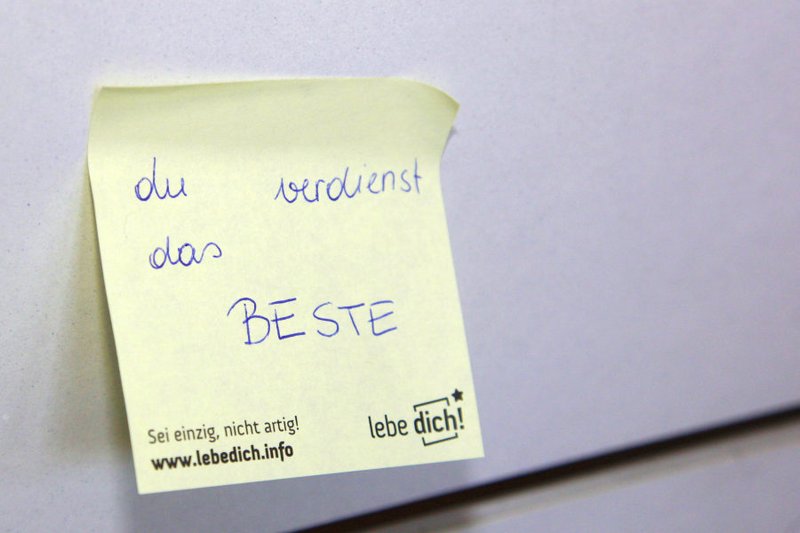 du verdienst
das
BESTE
Sei einzig, nicht artig!
www.lebedich.info
lebe dich!